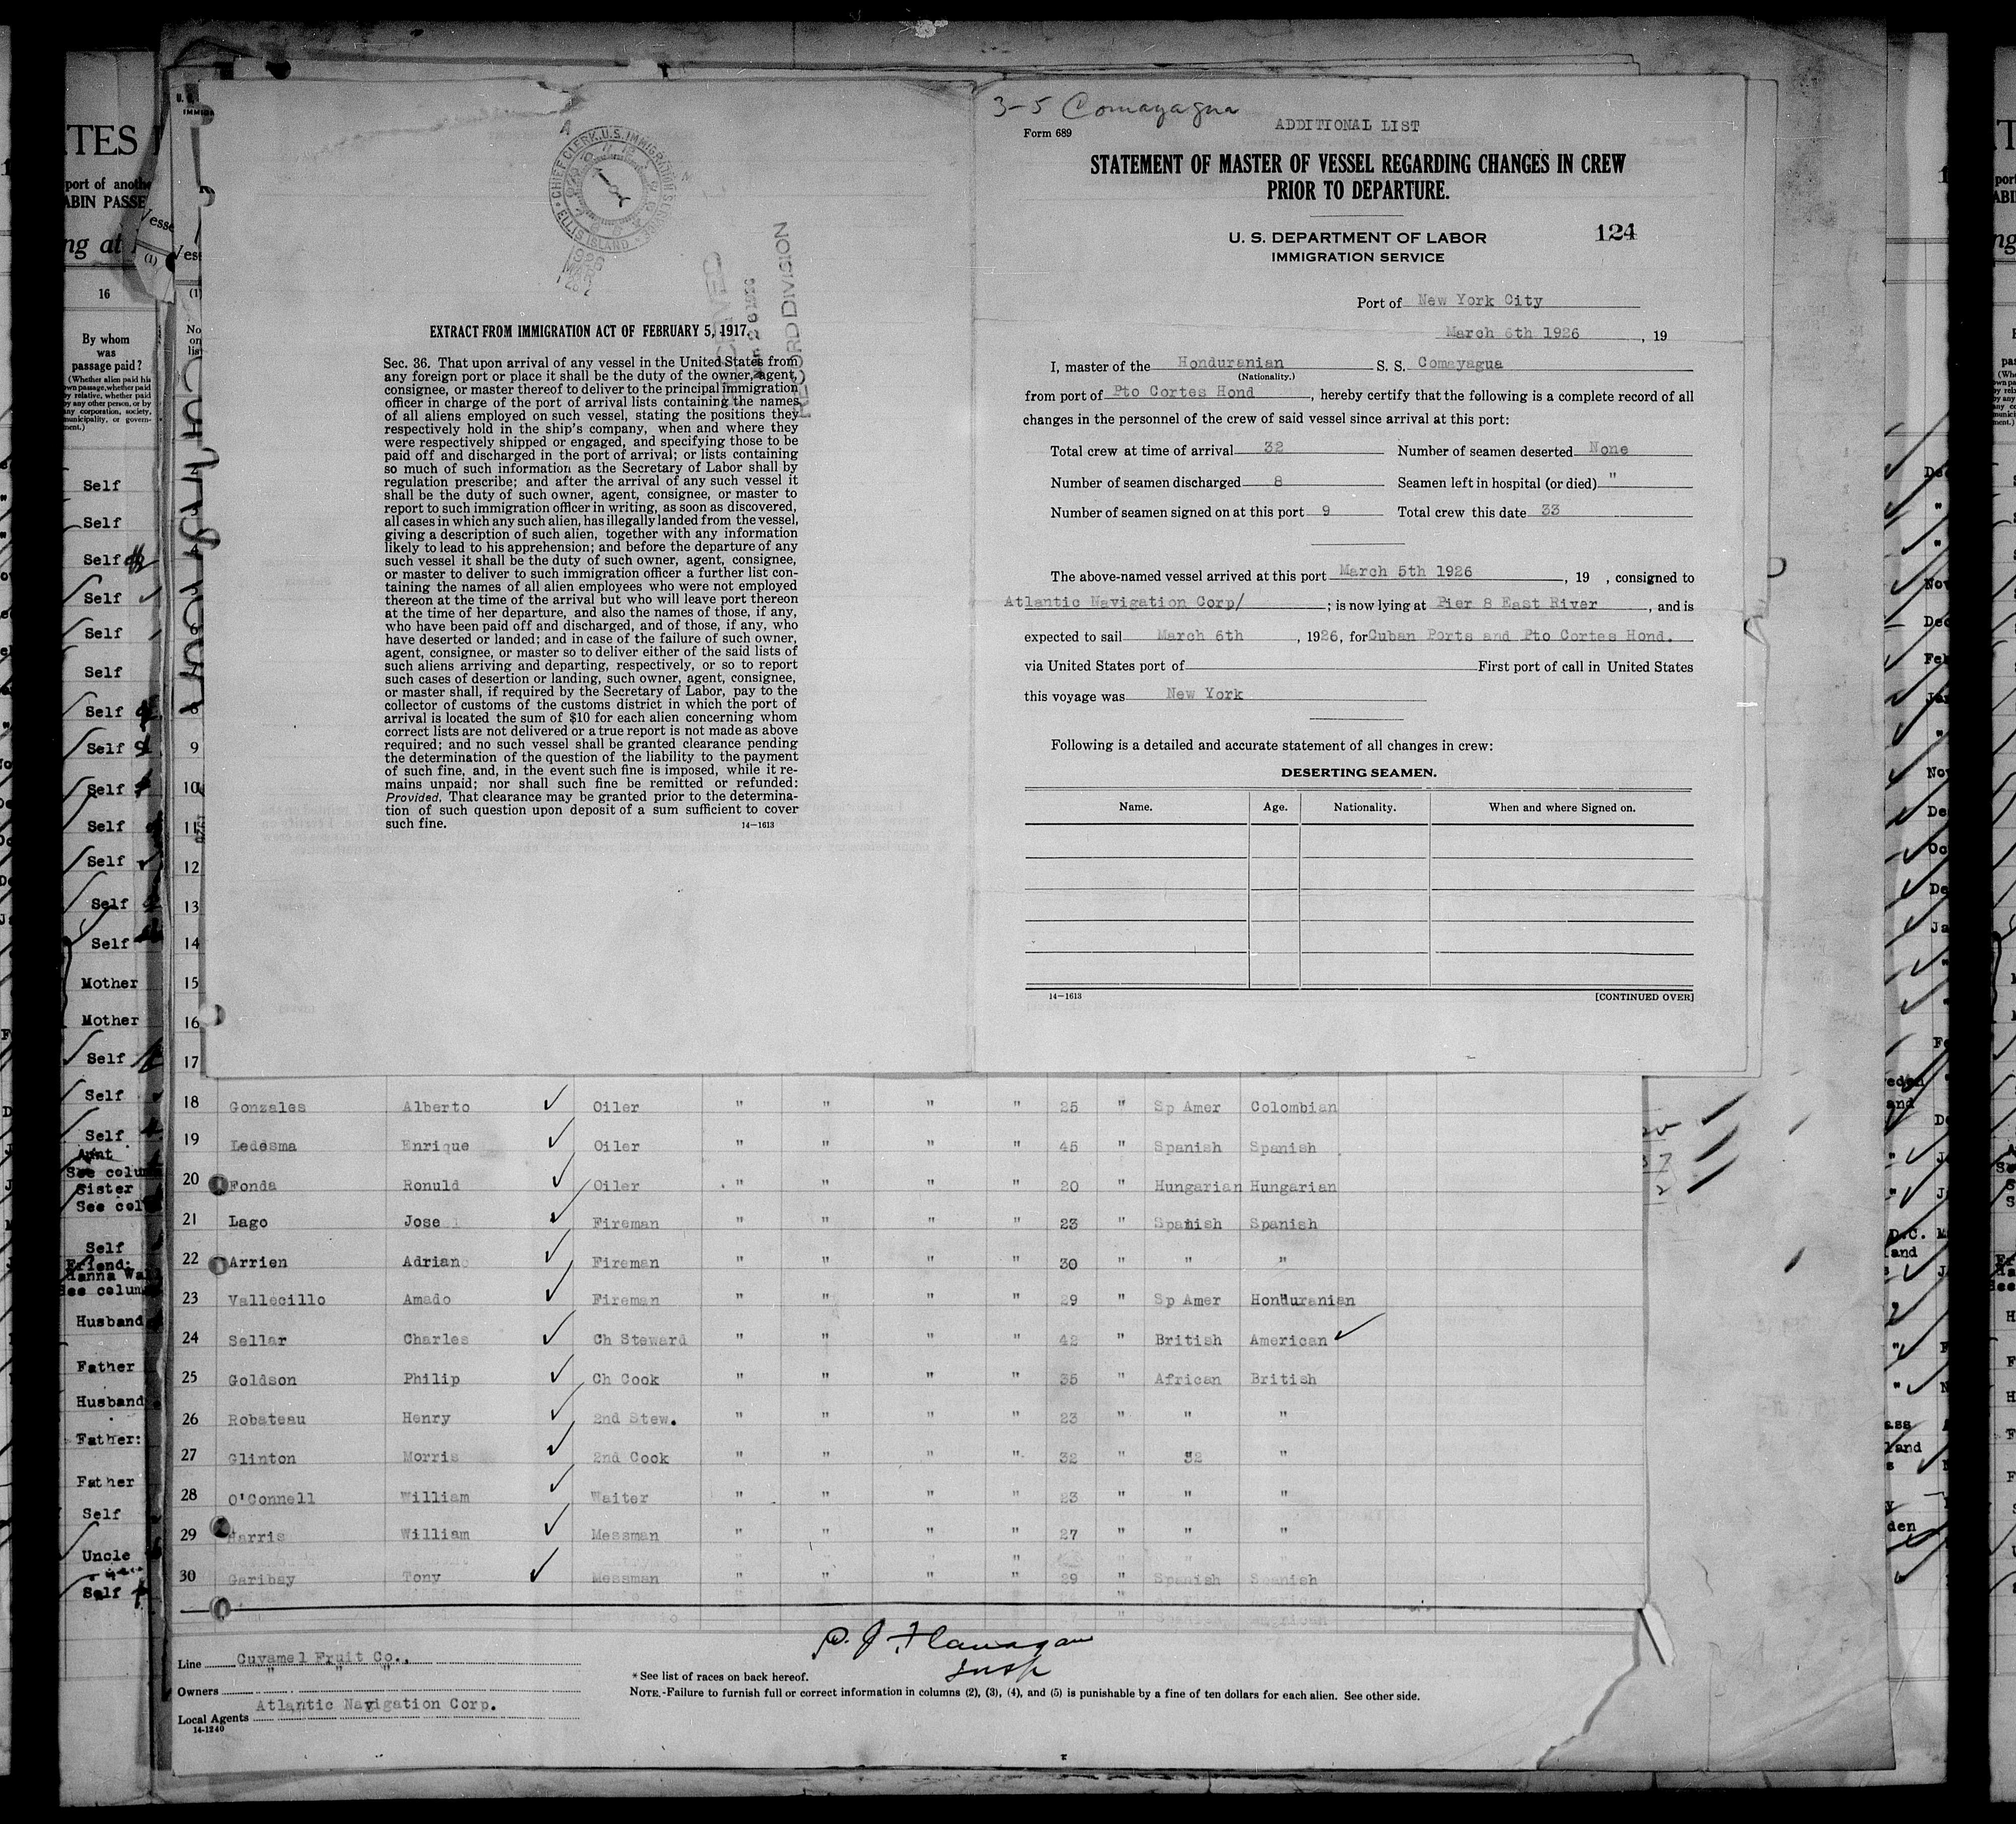 3-5 Comayagua
ADDITIONAL LIST
Form 689
STATEMENT OF MASTER OF VESSEL REGARDING CHANGES IN CREW
PRIOR TO DEPARTURE.
U. S. DEPARTMENT OF LABOR
IMMIGRATION SERVICE
124
Port of New York City
March 6th 1926, 19
I, master of the Honduranian S. S. Comayagua
(Nationality.)
from port of Pto Cortes Hond, hereby certify that the following is a complete record of all
changes in the personnel of the crew of said vessel since arrival at this port:
Total crew at time of arrival 32 Number of seamen deserted None
Number of seamen discharged 8 Seamen left in hospital (or died) "
Number of seamen signed on at this port 9 Total crew this date 33
The above-named vessel arrived at this port March 5th 1926, 19 , consigned to
Atlantic Navigation Corp/ ; is now lying at Pier 8 East River, and is
expected to sail March 6th, 1926, for Cuban Ports and Pto Cortes Hond.
via United States port of First port of call in United States
this voyage was New York
Following is a detailed and accurate statement of all changes in crew:
DESERTING SEAMEN.
Name. Age. Nationality. When and where Signed on.
14—1613 [CONTINUED OVER]
CHIEF CLERK, U.S. IMMIGRATION SERVICE
ELLIS ISLAND
RECORD DIVISION
EXTRACT FROM IMMIGRATION ACT OF FEBRUARY 5, 1917.
Sec. 36. That upon arrival of any vessel in the United States from
any foreign port or place it shall be the duty of the owner, agent,
consignee, or master thereof to deliver to the principal immigration
officer in charge of the port of arrival lists containing the names
of all aliens employed on such vessel, stating the positions they
respectively hold in the ship's company, when and where they
were respectively shipped or engaged, and specifying those to be
paid off and discharged in the port of arrival; or lists containing
so much of such information as the Secretary of Labor shall by
regulation prescribe; and after the arrival of any such vessel it
shall be the duty of such owner, agent, consignee, or master to
report to such immigration officer in writing, as soon as discovered,
all cases in which any such alien, has illegally landed from the vessel,
giving a description of such alien, together with any information
likely to lead to his apprehension; and before the departure of any
such vessel it shall be the duty of such owner, agent, consignee,
or master to deliver to such immigration officer a further list con-
taining the names of all alien employees who were not employed
thereon at the time of the arrival but who will leave port thereon
at the time of her departure, and also the names of those, if any,
who have been paid off and discharged, and of those, if any, who
have deserted or landed; and in case of the failure of such owner,
agent, consignee, or master so to deliver either of the said lists of
such aliens arriving and departing, respectively, or so to report
such cases of desertion or landing, such owner, agent, consignee,
or master shall, if required by the Secretary of Labor, pay to the
collector of customs of the customs district in which the port of
arrival is located the sum of $10 for each alien concerning whom
correct lists are not delivered or a true report is not made as above
required; and no such vessel shall be granted clearance pending
the determination of the question of the liability to the payment
of such fine, and, in the event such fine is imposed, while it re-
mains unpaid; nor shall such fine be remitted or refunded:
Provided, That clearance may be granted prior to the determina-
tion of such question upon deposit of a sum sufficient to cover
such fine. 14—1613
9
10
11
12
13
14
15
16
17
18 Gonzales Alberto Oiler " " " " 25 " Sp Amer Colombian
19 Ledesma Enrique Oiler " " " " 45 " Spanish Spanish
20 Fonda Ronuld Oiler " " " " 20 " Hungarian Hungarian
21 Lago Jose Fireman " " " " 23 " Spanish Spanish
22 Arrien Adrian Fireman " " " " 30 " " "
23 Vallecillo Amado Fireman " " " " 29 " Sp Amer Honduranian
24 Sellar Charles Ch Steward " " " " 42 " British American
25 Goldson Philip Ch Cook " " " " 35 " African British
26 Robateau Henry 2nd Stew. " " " " 23 " " "
27 Glinton Morris 2nd Cook " " " " 32 " 32 "
28 O'Connell William Waiter " " " " 23 " " "
29 Harris William Messman " " " " 27 " " "
30 Garibay Tony Messman " " " " 29 " Spanish Spanish
Line Cuyamel Fruit Co.,
Owners " " "
Local Agents Atlantic Navigation Corp.
14-1240
Flanagan
Insp
* See list of races on back hereof.
NOTE.-Failure to furnish full or correct information in columns (2), (3), (4), and (5) is punishable by a fine of ten dollars for each alien. See other side.
16
By whom
was
passage paid?
Self
Self
Self
Self
Self
Self
Self
Self
Self
Self
Self
Self
Self
Mother
Mother
Self
Self
Self
Aunt
Sister
Self
Friend:
Husband
Father
Husband
Father:
Father
Self
Uncle
Self